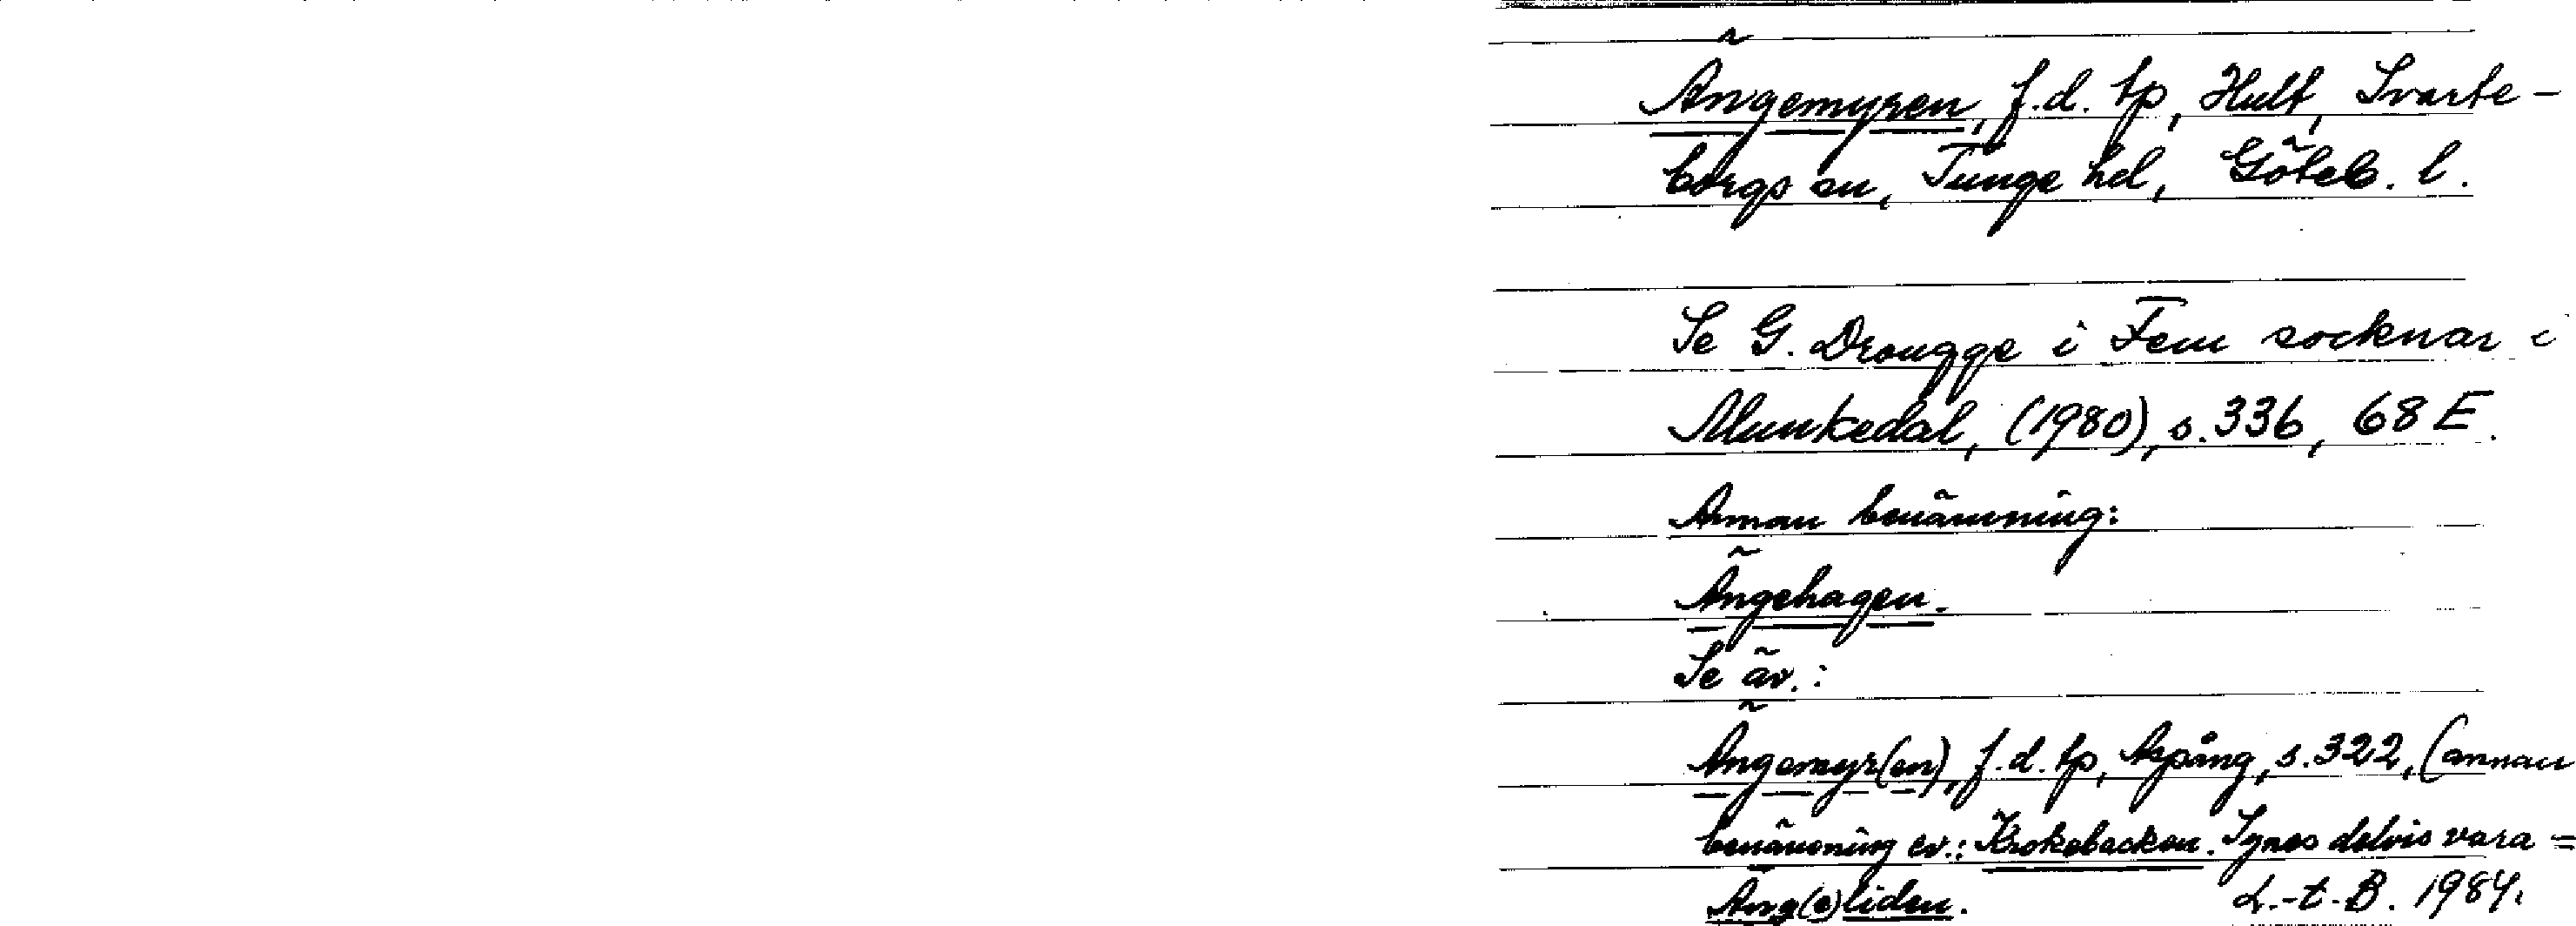 Ängemyren, f.d. tp, Hult, Svarte-
borgs sn, Tunge hd, Göteb. l.
Se G. Drougge i Fem socknar i
Munkedal, (1980), s. 336, 68 E.
Annan benämning:
Ängehagen.
Se äv.:
Ängemyr(en), f.d. tp, Aspång, s. 322, (annan
benämning ev.: Krokebacken. Synes delvis vara =
Äng(e)liden. L.-t. B. 1984.